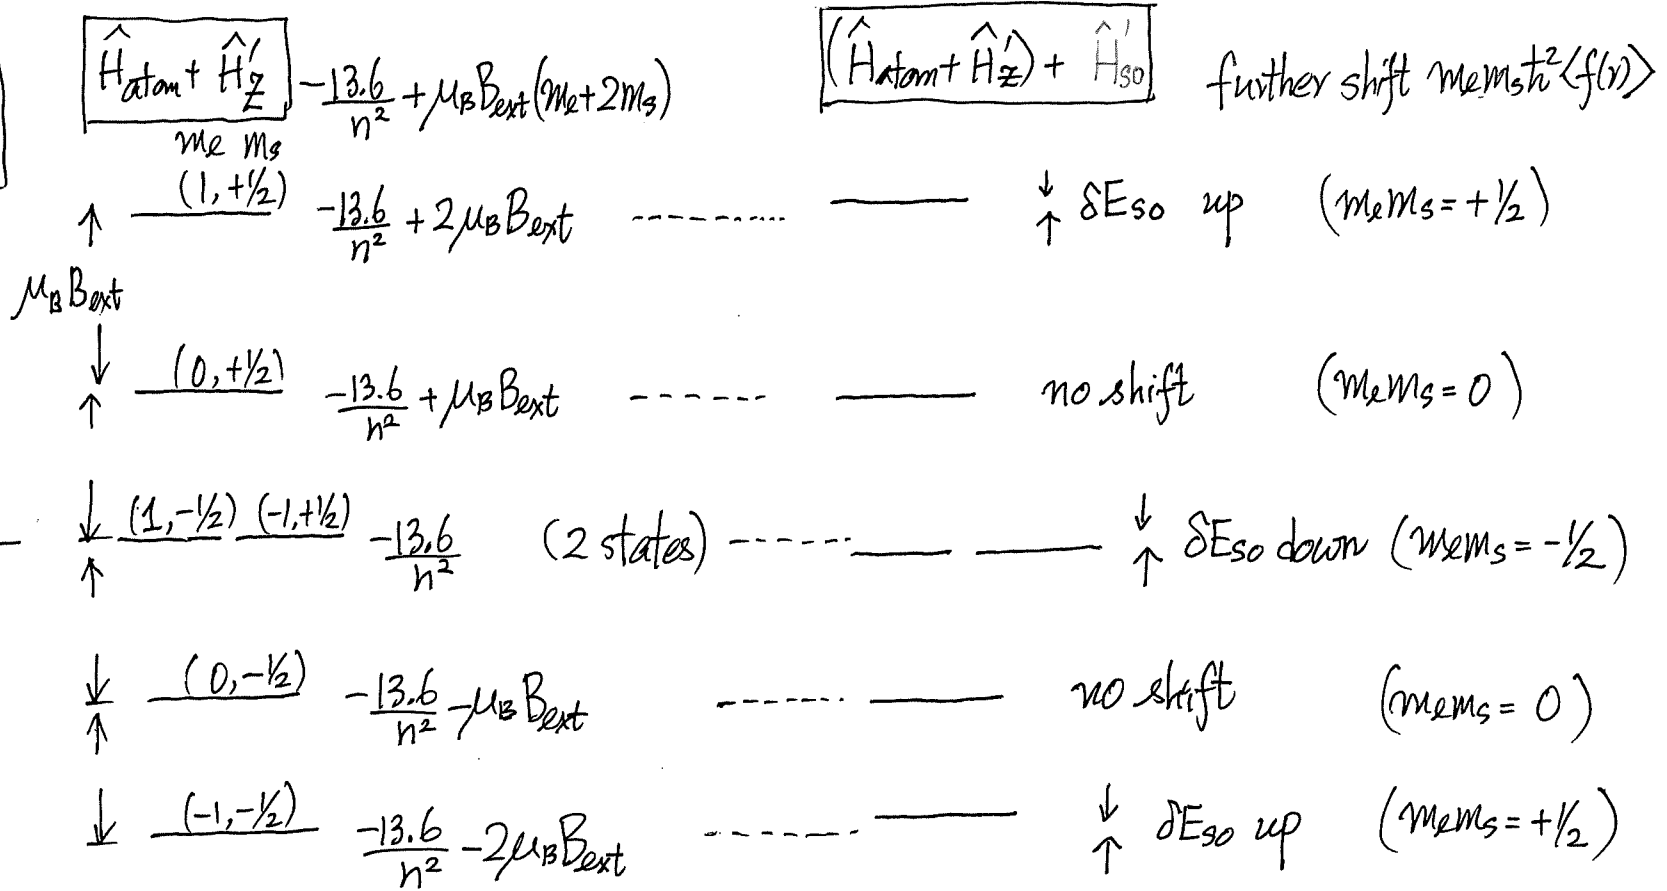 Ĥatom + Ĥ'Z  -13.6/n² + μB Bext (mℓ + 2ms)  (Ĥatom + Ĥ'Z) + Ĥ'so  further shift mℓ ms ħ² <f(r)>
mℓ ms
(1, +1/2)  -13.6/n² + 2μB Bext  δEso up  (mℓ ms = +1/2)
μB Bext
(0, +1/2)  -13.6/n² + μB Bext  no shift  (mℓ ms = 0)
(1, -1/2) (-1, +1/2)  -13.6/n²  (2 states)  δEso down (mℓ ms = -1/2)
(0, -1/2)  -13.6/n² - μB Bext  no shift  (mℓ ms = 0)
(-1, -1/2)  -13.6/n² - 2μB Bext  δEso up  (mℓ ms = +1/2)